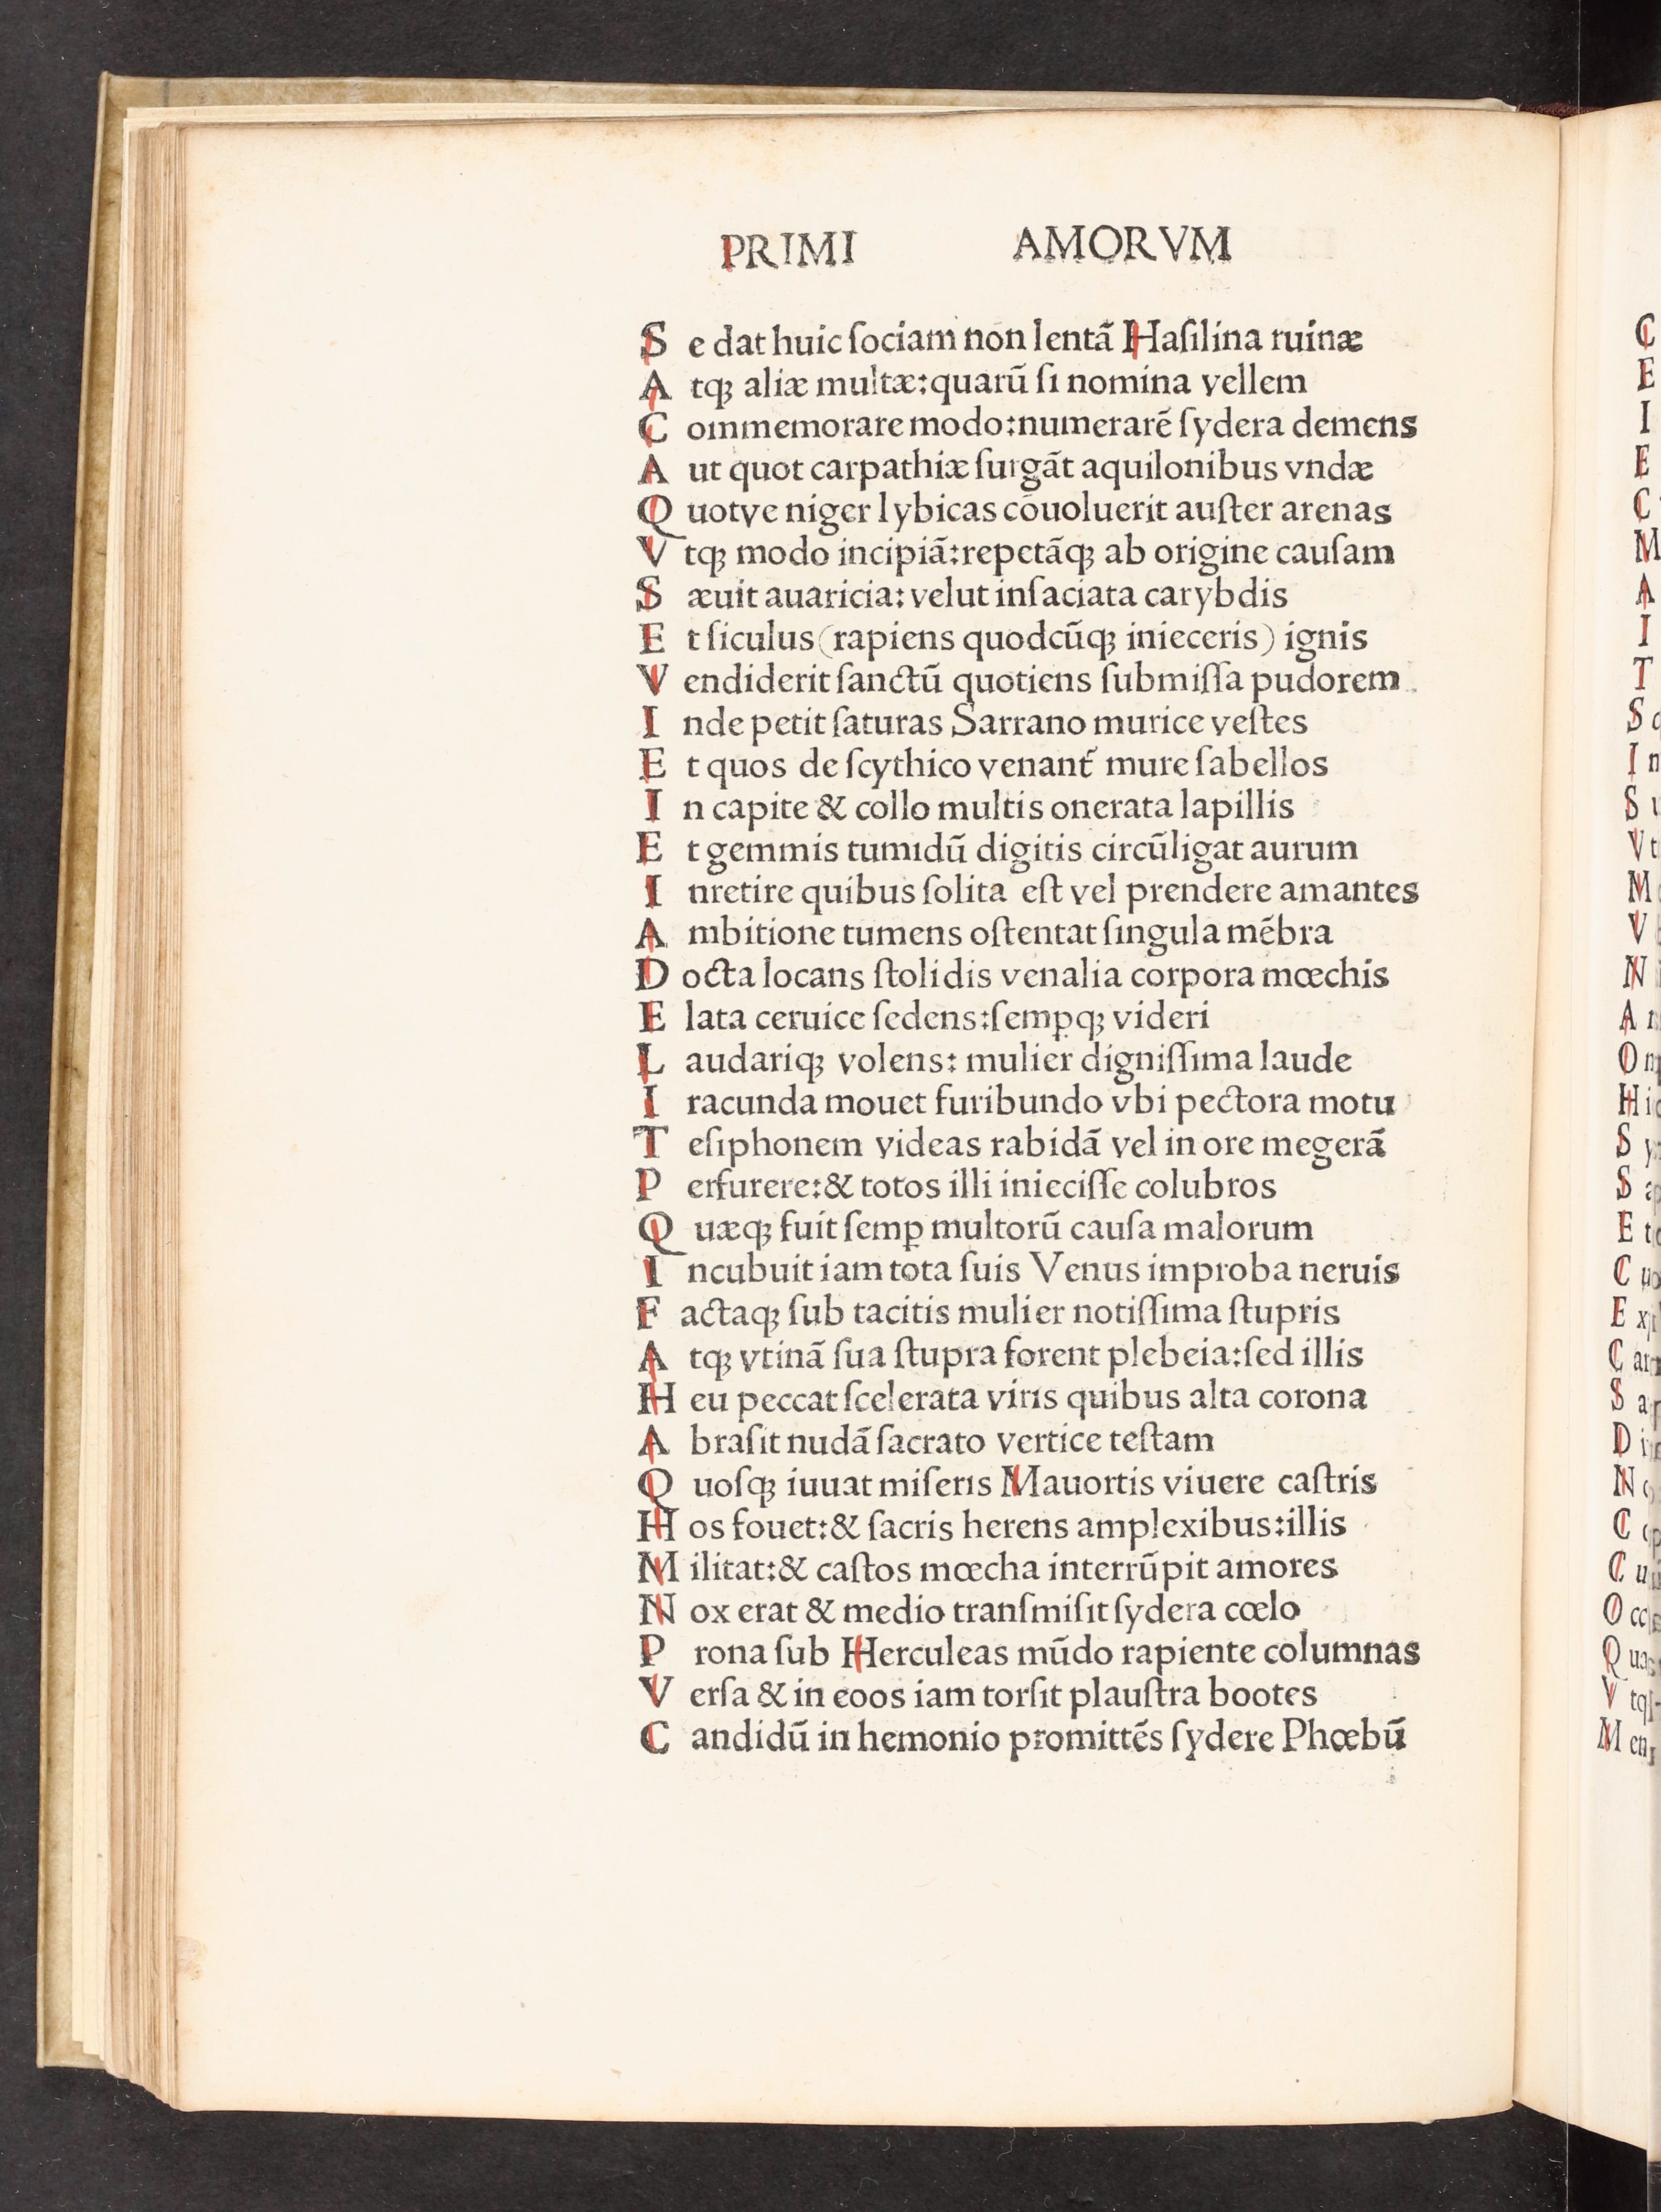 PRIMI AMORVM
Se dat huic ſociam non lentã Haſilina ruinæ
Atqꝫ aliæ multæ:quarũ ſi nomina vellem
Commemorare modo:numerarẽ ſydera demens
Aut quot carpathiæ ſurgãt aquilonibus vndæ
Quotve niger lybicas cõuoluerit auſter arenas
Vtqꝫ modo incipiã:repetãqꝫ ab origine cauſam
Sæuit auaricia:velut inſaciata carybdis
Et ſiculus (rapiens quodcũqꝫ inieceris) ignis
Vendiderit ſanctũ quotiens ſubmiſſa pudorem
Inde petit ſaturas Sarrano murice veſtes
Et quos de ſcythico venant᷑ mure ſabellos
In capite & collo multis onerata lapillis
Et gemmis tumidũ digitis circũligat aurum
Inretire quibus ſolita eſt vel prendere amantes
Ambitione tumens oſtentat ſingula mẽbra
Docta locans ſtolidis venalia corpora mœchis
Elata ceruice ſedens:ſemꝑqꝫ videri
Laudariqꝫ volens: mulier digniſſima laude
Iracunda mouet furibundo vbi pectora motu
Teſiphonem videas rabidã vel in ore megerã
Perfurere:& totos illi inieciſſe colubros
Quæqꝫ fuit ſemꝑ multorũ cauſa malorum
Incubuit iam tota ſuis Venus improba neruis
Factaqꝫ ſub tacitis mulier notiſſima ſtupris
Atqꝫ vtinã ſua ſtupra forent plebeia:ſed illis
Heu peccat ſcelerata viris quibus alta corona
Abraſit nudã ſacrato vertice teſtam
Quoſqꝫ iuuat miſeris Mauortis viuere caſtris
Hos fouet:& ſacris herens amplexibus:illis
Militat:& caſtos mœcha interrũpit amores
Nox erat & medio tranſmiſit ſydera cœlo
Prona ſub Herculeas mũdo rapiente columnas
Verſa & in eoos iam torſit plauſtra bootes
Candidũ in hemonio promittẽs ſydere Phœbũ